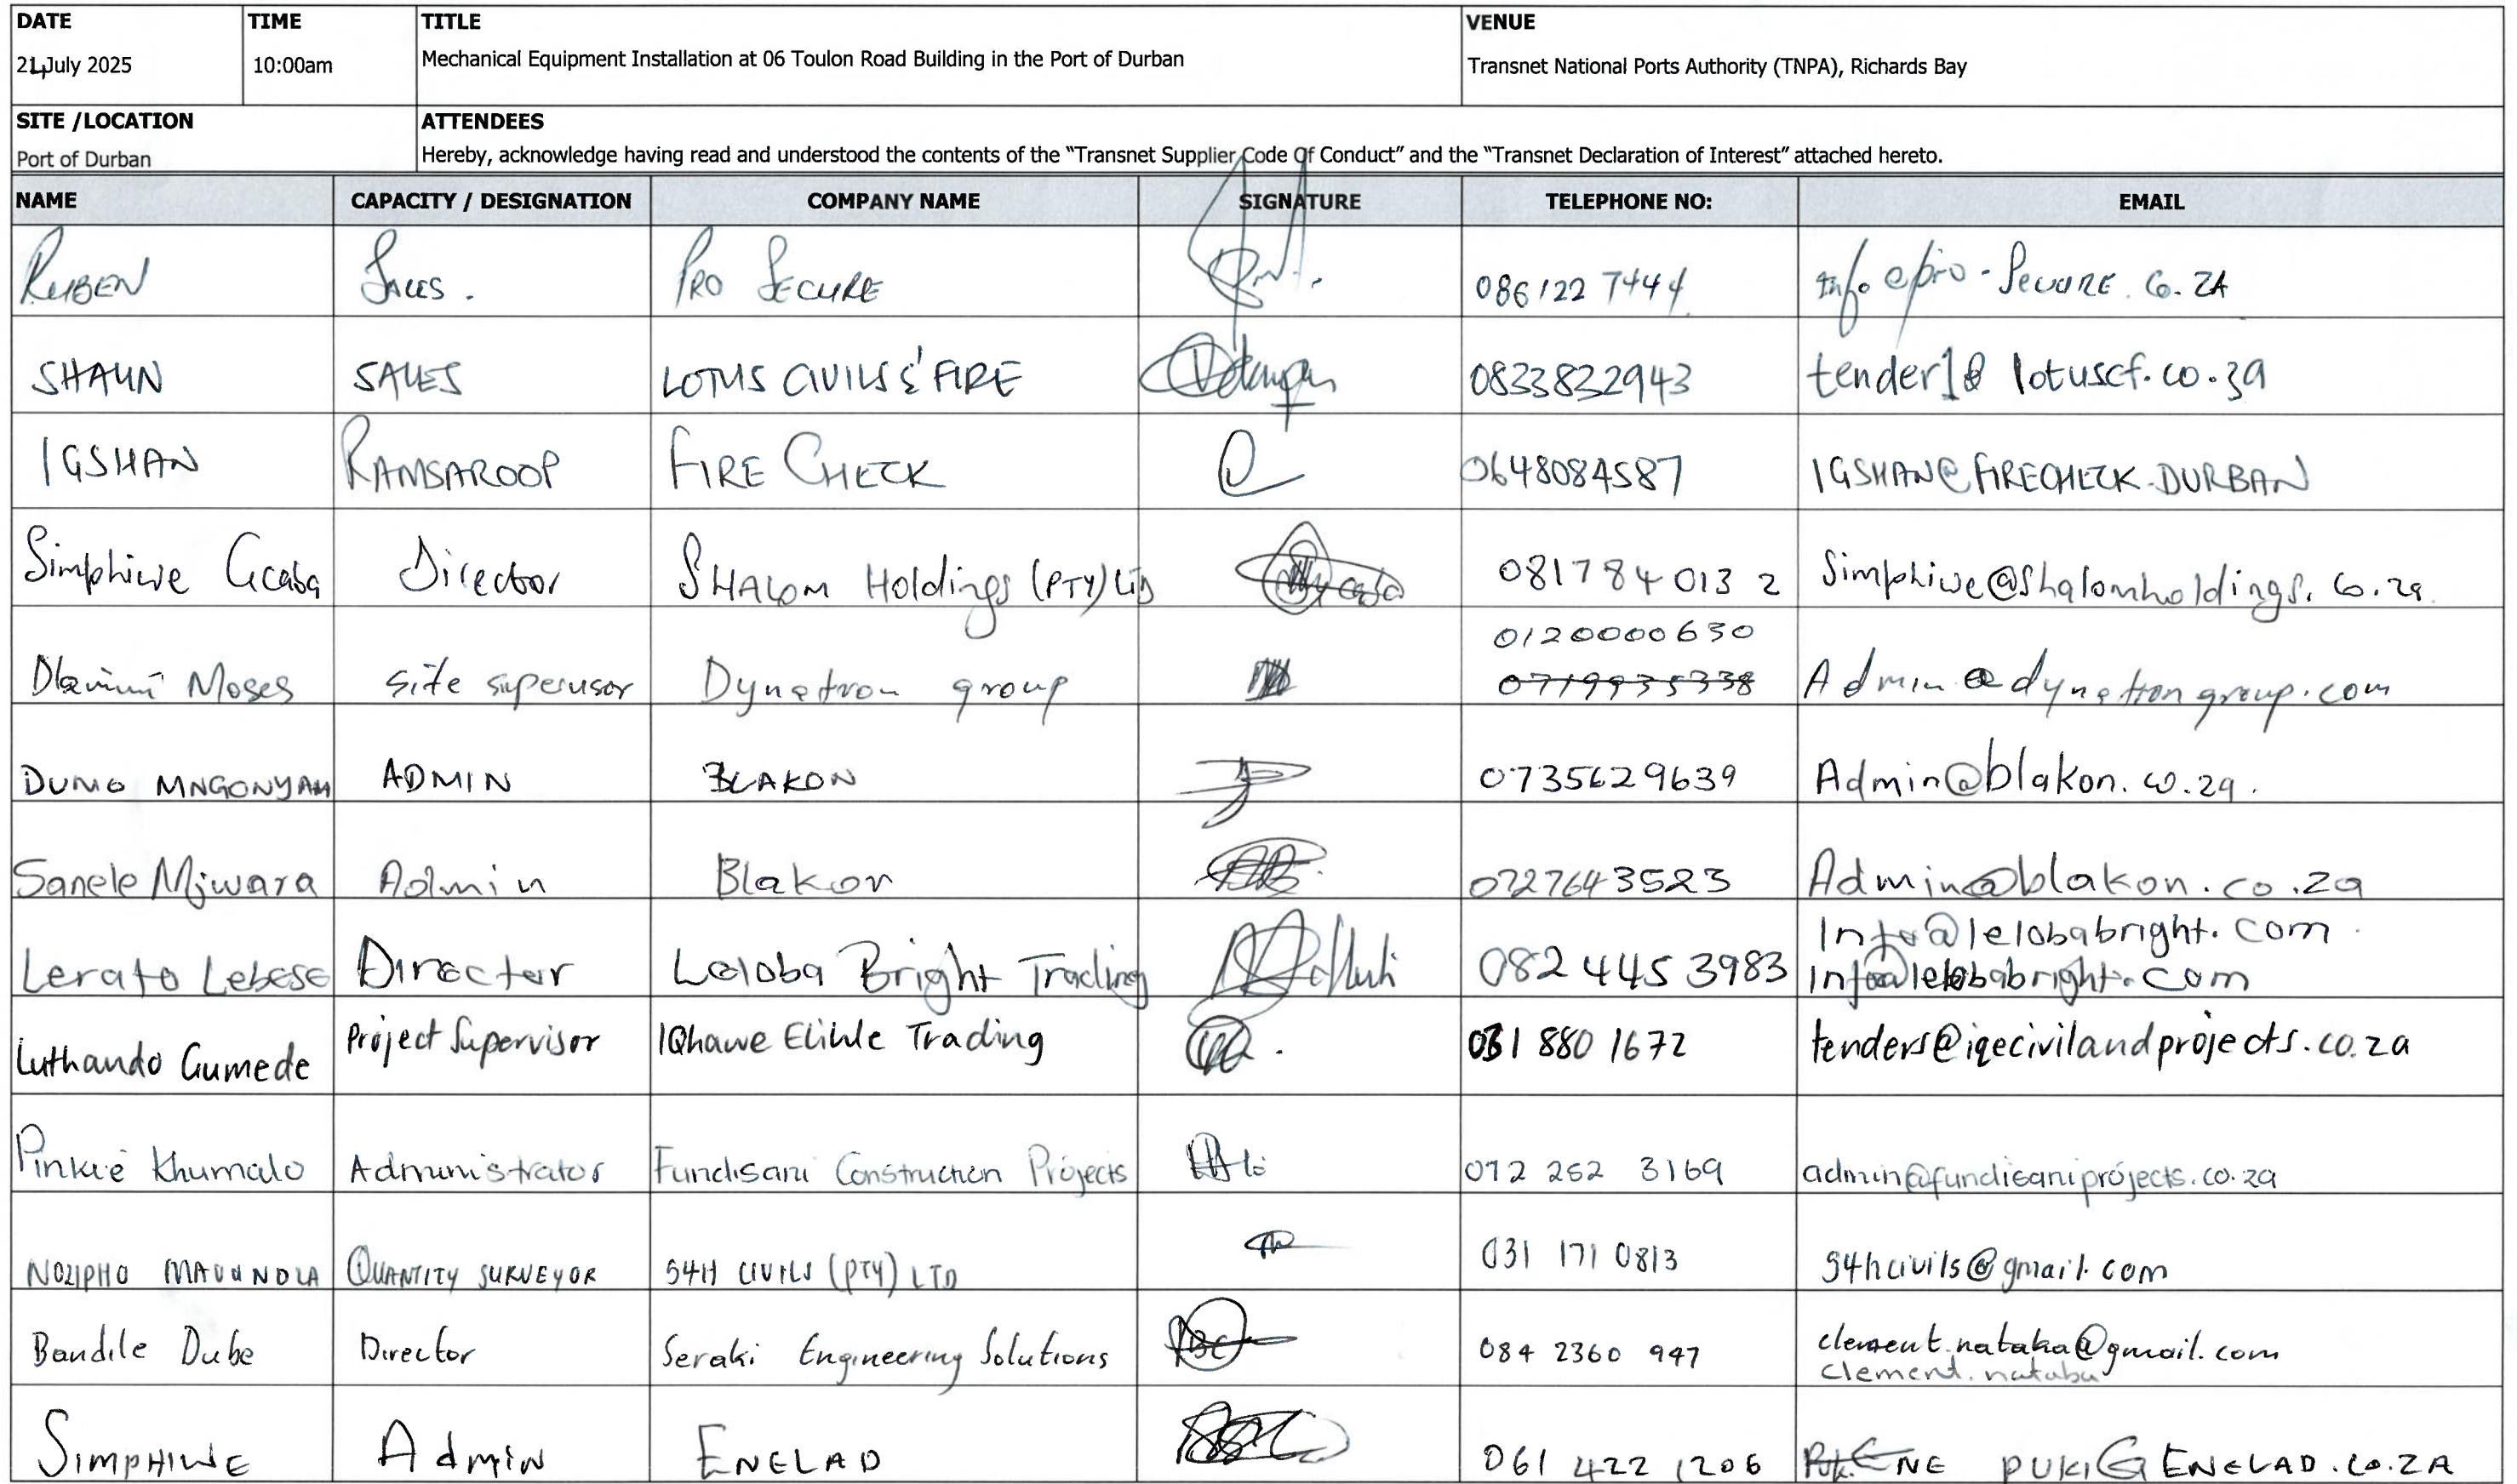 DATE TIME TITLE VENUE
24 July 2025 10:00am Mechanical Equipment Installation at 06 Toulon Road Building in the Port of Durban Transnet National Ports Authority (TNPA), Richards Bay
SITE /LOCATION ATTENDEES
Port of Durban Hereby, acknowledge having read and understood the contents of the “Transnet Supplier Code Of Conduct” and the “Transnet Declaration of Interest” attached hereto.
NAME CAPACITY / DESIGNATION COMPANY NAME SIGNATURE TELEPHONE NO: EMAIL
RUBEN SALES. PRO SECURE 086122 7444 Info@pro-Secure.Co.ZA
SHAUN SALES LOTUS CIVILS & FIRE 0833832943 tender1@lotuscf.co.za
IGSHAN RAMSAROOP FIRE CHECK 0648084587 IGSHAN@FIRECHECK.DURBAN
Simphiwe Gcaba Director SHALOM Holdings (PTY) LTD 081784 013 2 Simphiwe@Shalomholdings.Co.za
0120000630
Dlamini Moses Site supervisor Dynatron group 0719935338 Admin@dynatrongroup.com
DUMO MNGONYAM ADMIN BLAKON 0735629639 Admin@blakon.co.za.
Sanele Mjwara Admin Blakon 0727643523 Admin@blakon.co.za
Info@lelobabright.com
Lerato Lebese Director Leloba Bright Trading 082 445 3983 Info@lelobabright.com
Luthando Gumede Project Supervisor IQhawe Elihle Trading 031 880 1672 tenders@iqecivilandprojects.co.za
Pinkie Khumalo Administrator Fundisani Construction Projects 072 252 3169 admin@fundisaniprojects.co.za
NOZIPHO MAVUNDLA QUANTITY SURVEYOR S4H CIVILS (PTY) LTD 031 171 0813 s4hcivils@gmail.com
Bandile Dube Director Seraki Engineering Solutions 084 2360 947 clement.nataka@gmail.com
clement.nataba
SIMPHIWE Admin ENELAD 061 422 1206 PUKI@ENELAD.CO.ZA